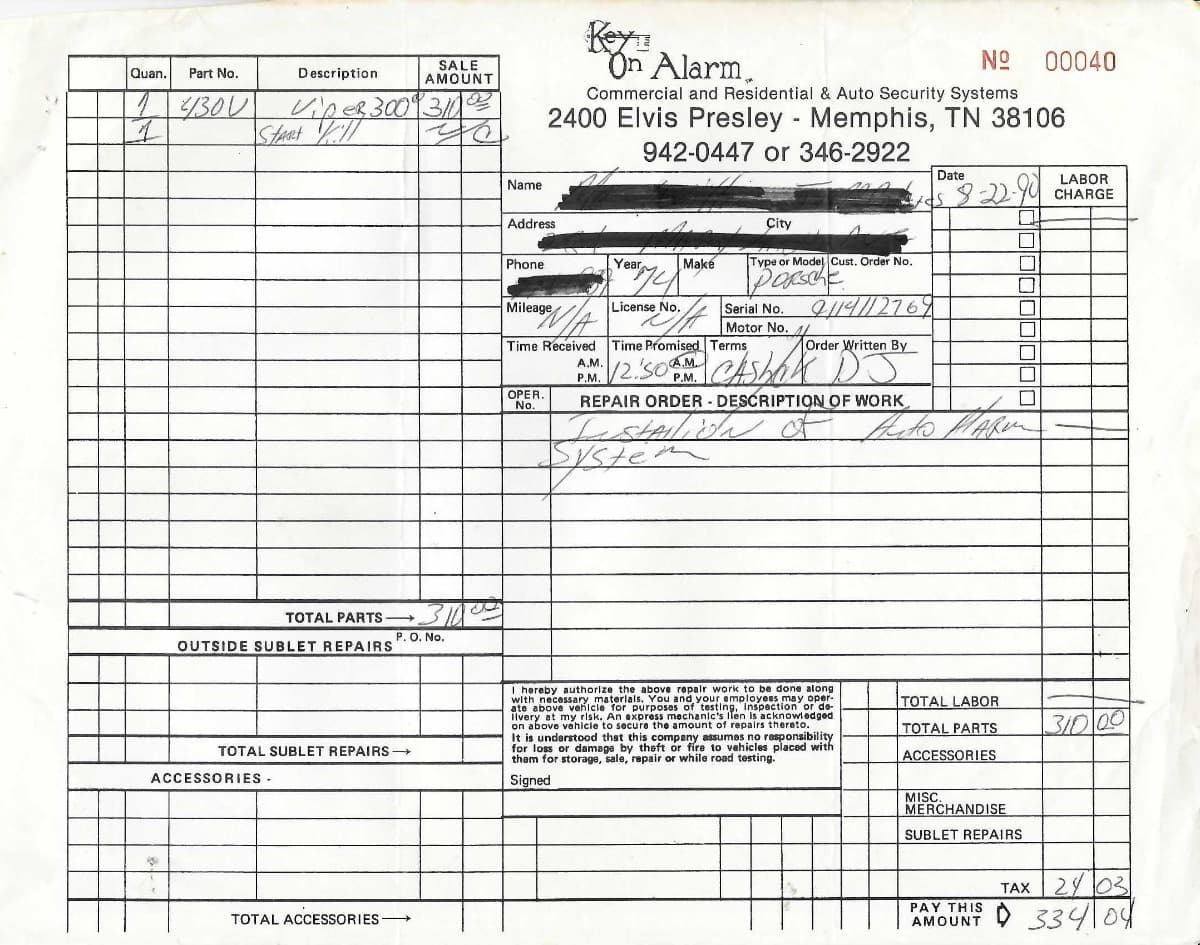 Key On Alarm
Nº 00040
Commercial and Residential & Auto Security Systems
2400 Elvis Presley - Memphis, TN 38106
942-0447 or 346-2922
Quan. Part No. Description SALE AMOUNT
1 430V Viper 300 310 00
1 Start Kill N/C
TOTAL PARTS → 310 00
OUTSIDE SUBLET REPAIRS P. O. No.
TOTAL SUBLET REPAIRS →
ACCESSORIES -
TOTAL ACCESSORIES →
Name
Date 8-22-90
LABOR CHARGE
Address City
Phone Year 74 Make Type or Model Porsche Cust. Order No.
Mileage N/A License No. N/A Serial No. 9114112769
Motor No.
Time Received A.M. P.M. Time Promised 12:50 A.M. P.M. Terms Order Written By DJ
OPER. No. REPAIR ORDER - DESCRIPTION OF WORK
Instalion of Auto Alarm
System
I hereby authorize the above repair work to be done along
with necessary materials. You and your employees may oper-
ate above vehicle for purposes of testing, inspection or de-
livery at my risk. An express mechanic's lien is acknowledged
on above vehicle to secure the amount of repairs thereto.
It is understood that this company assumes no responsibility
for loss or damage by theft or fire to vehicles placed with
them for storage, sale, repair or while road testing.
Signed
TOTAL LABOR
TOTAL PARTS 310 00
ACCESSORIES
MISC. MERCHANDISE
SUBLET REPAIRS
TAX 24 03
PAY THIS AMOUNT 334 04